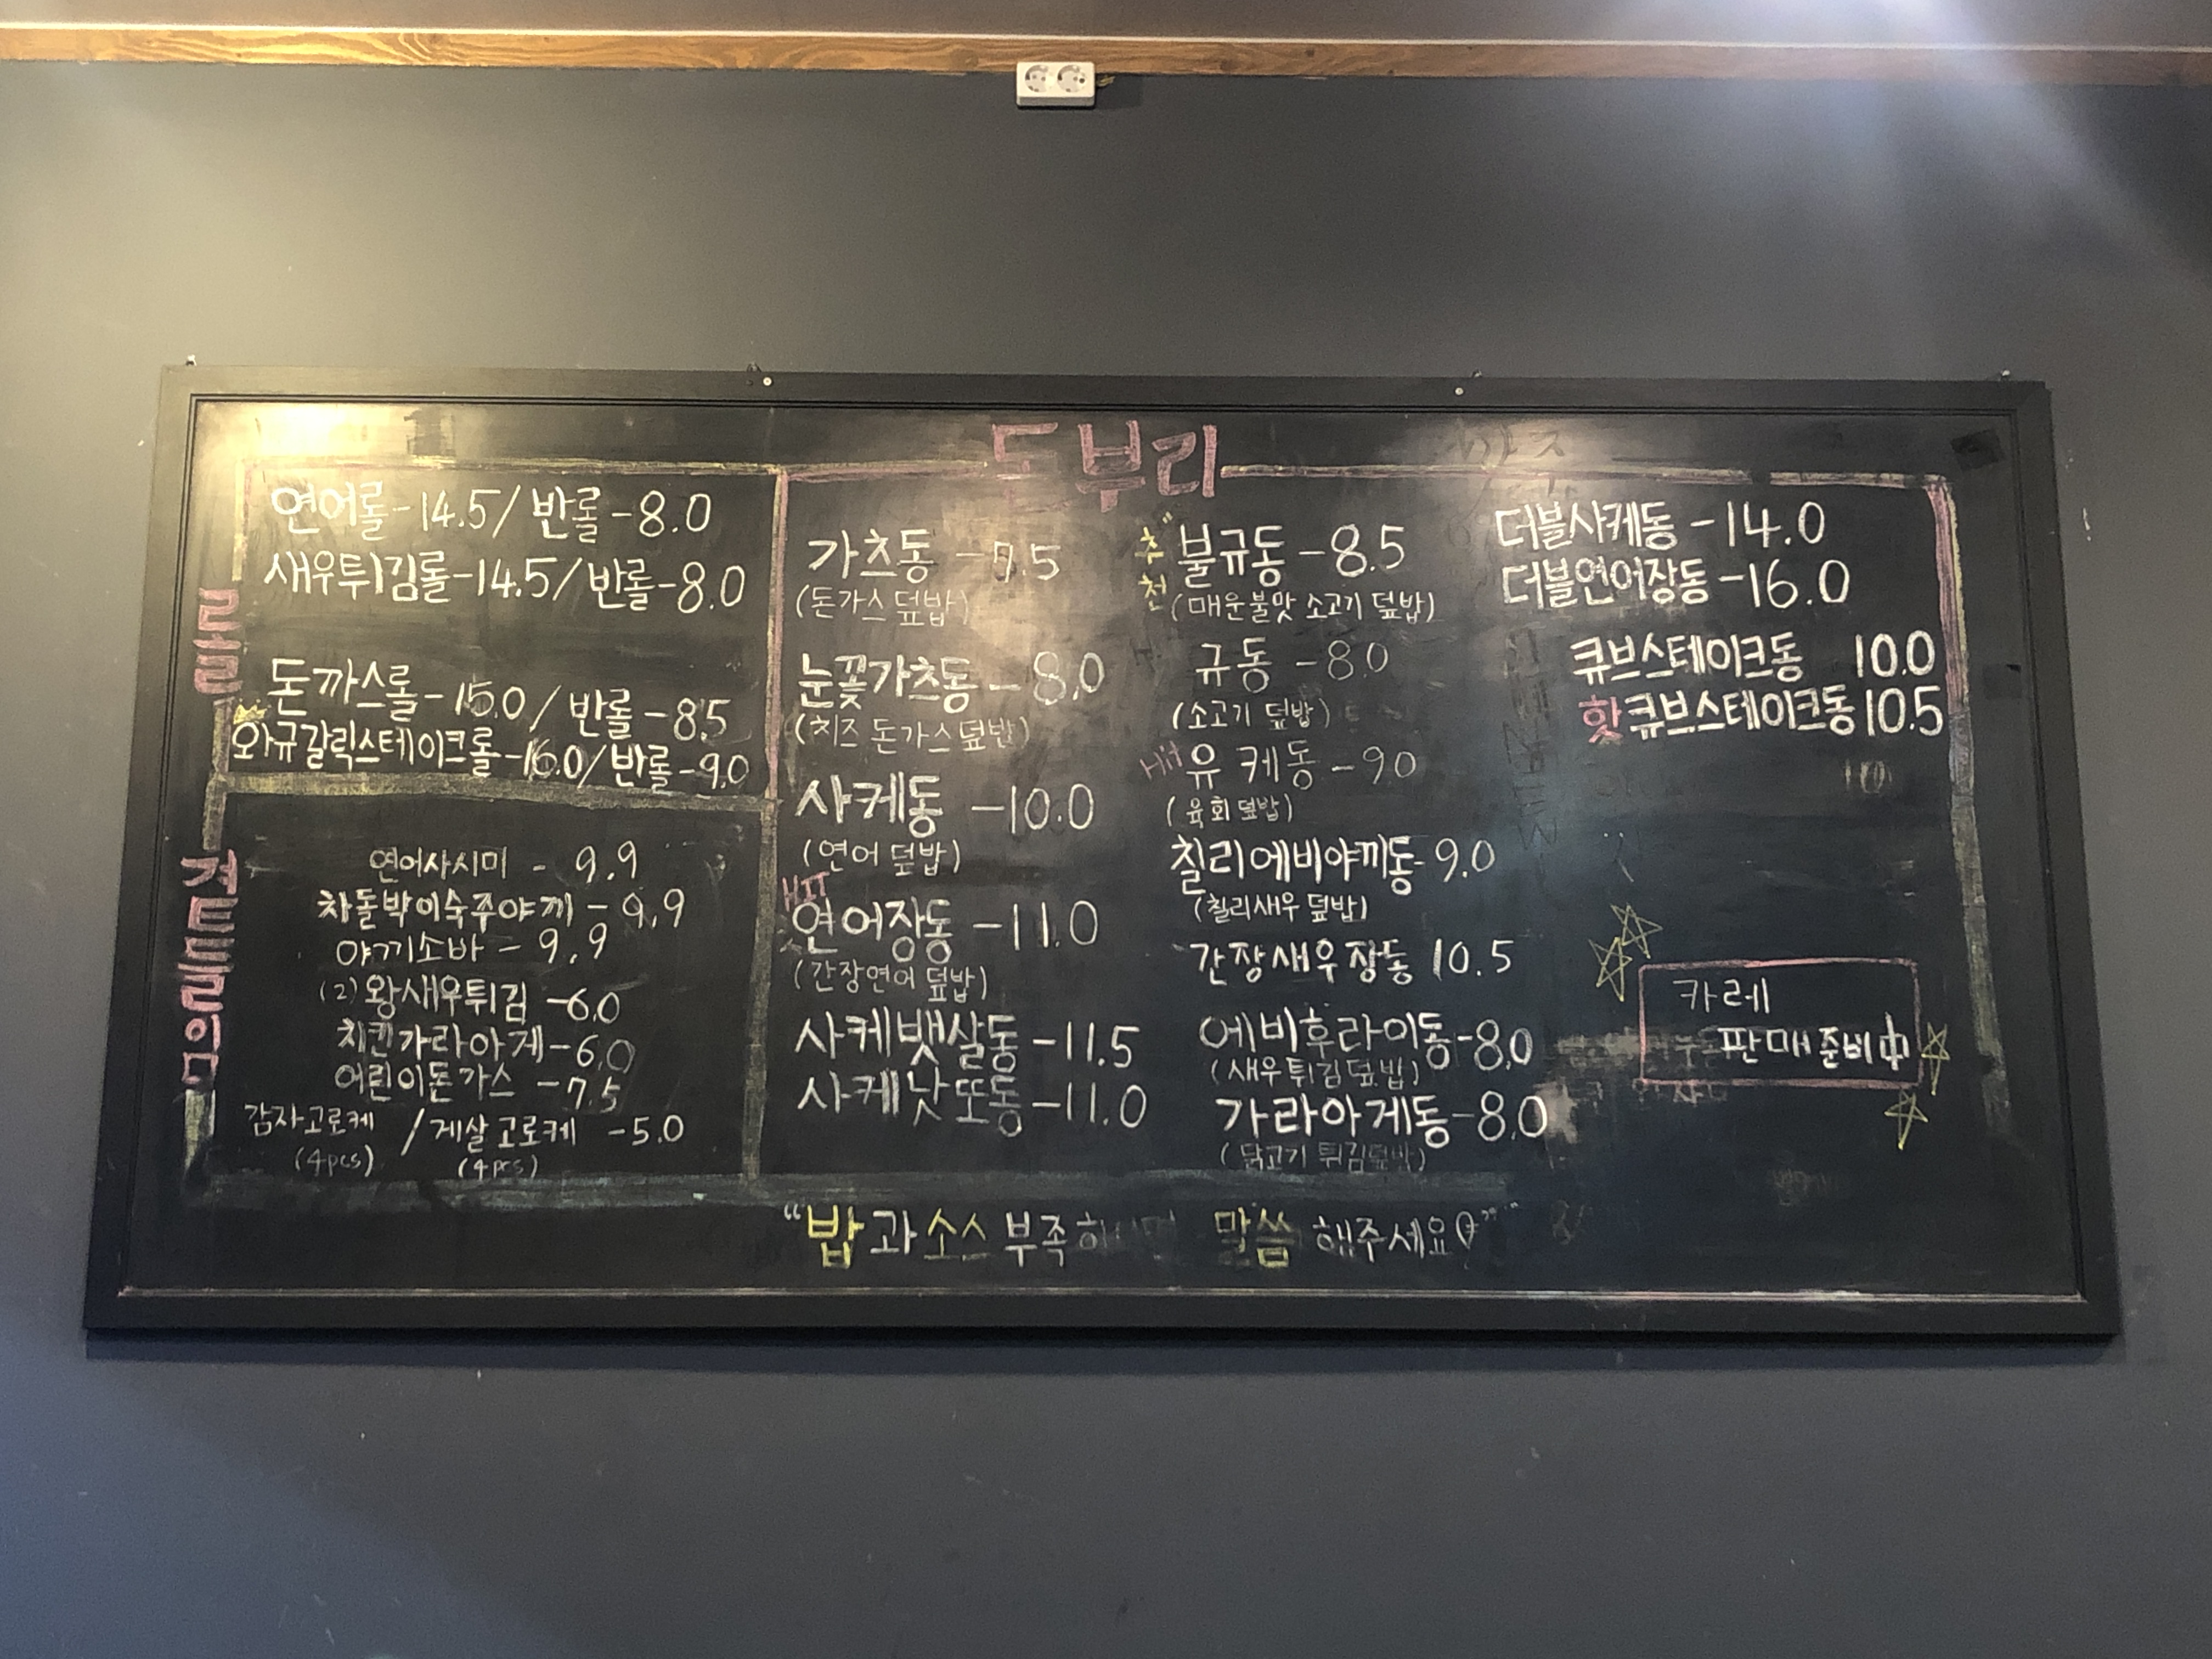 롤
연어롤-14.5/ 반롤-8.0
새우튀김롤-14.5/ 반롤-8.0
돈까스롤-15.0/ 반롤-8.5
와규갈릭스테이크롤-16.0/ 반롤-9.0
곁들임
연어사시미 - 9.9
차돌박이숙주야끼 - 9.9
야끼소바 - 9.9
(2) 왕새우튀김 -6.0
치킨가라아게-6.0
어린이돈가스 -7.5
감자고로케 / 게살고로케 -5.0
(4pcs) (4pcs)
돈부리
가츠동
(돈가스 덮밥)
눈꽃가츠동 - 8.0
(치즈 돈가스덮밥)
사케동 -10.0
(연어 덮밥)
HIT
연어장동 -11.0
(간장연어 덮밥)
사케뱃살동 -11.5
사케낫또동 -11.0
추천
불규동 -8.5
(매운불맛 소고기 덮밥)
규동 -8.0
(소고기 덮밥)
Hit 유케동 -9.0
(육회덮밥)
칠리에비야끼동- 9.0
(칠리새우 덮밥)
간장새우장동 10.5
에비후라이동-8.0
(새우튀김덮밥)
가라아게동-8.0
(닭고기 튀김덮밥)
더블사케동 -14.0
더블연어장동 -16.0
큐브스테이크동 10.0
핫큐브스테이크동 10.5
카레
판매준비中
"밥과 소스 부족 말씀 해주세요"